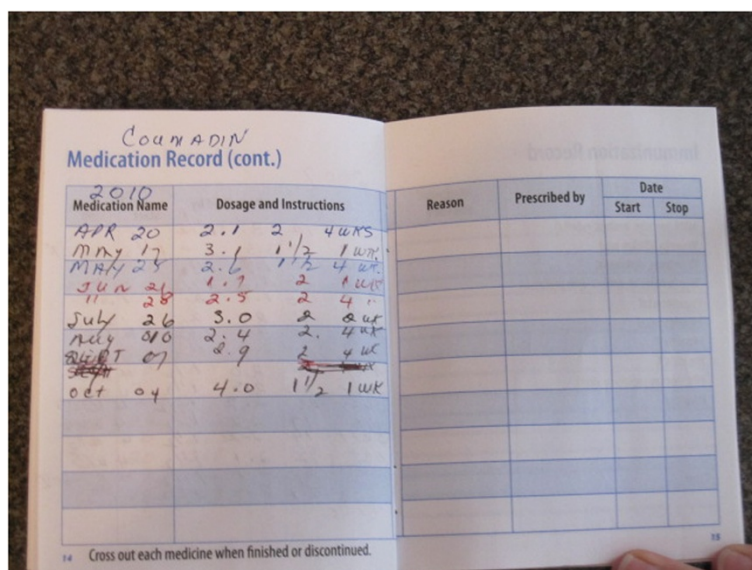 COUMADIN
Medication Record (cont.)
2010
Medication Name Dosage and Instructions
APR 20 2.1 2 4 WKS
MAY 17 3.1 1 1/2 1 WK.
MAY 25 2.6 1 1/2 4 WK.
JUN 21 1.7 2 1 WK
" 28 2.5 2 4 "
July 26 3.0 2 2 WK
Aug 010 2.4 2. 4 WK
SEPT 07 2.9 2 4 WK
Oct 04 4.0 1 1/2 1 WK
14 Cross out each medicine when finished or discontinued.
Reason Prescribed by Date
Start Stop
15